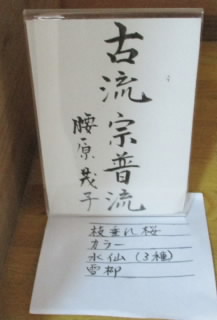 古流 宗普流
腰原茂子
枝垂れ桜
カラー
水仙(3種)
雪柳